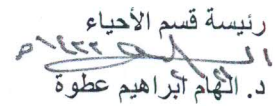 رئيسة قسم الأحياء
د. الهام ابراهيم عطوة